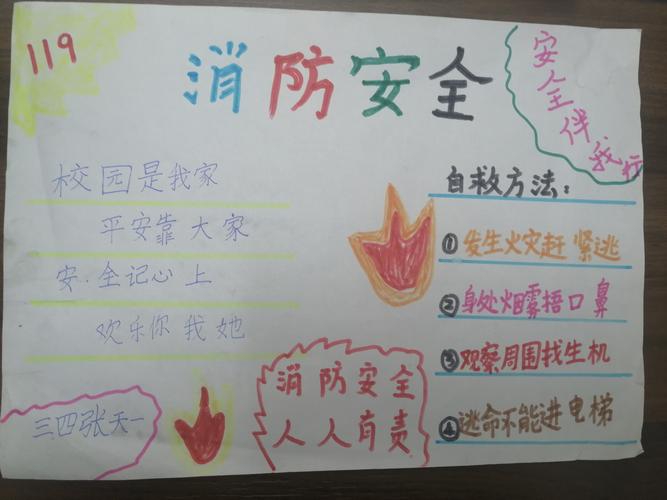 119
消防安全
安全伴我行
校园是我家
平安靠大家
安.全记心上
欢乐你我她
自救方法：
①发生火灾赶紧逃
②身处烟雾捂口鼻
③观察周围找生机
④逃命不能进电梯
消防安全
人人有责
三四张天一